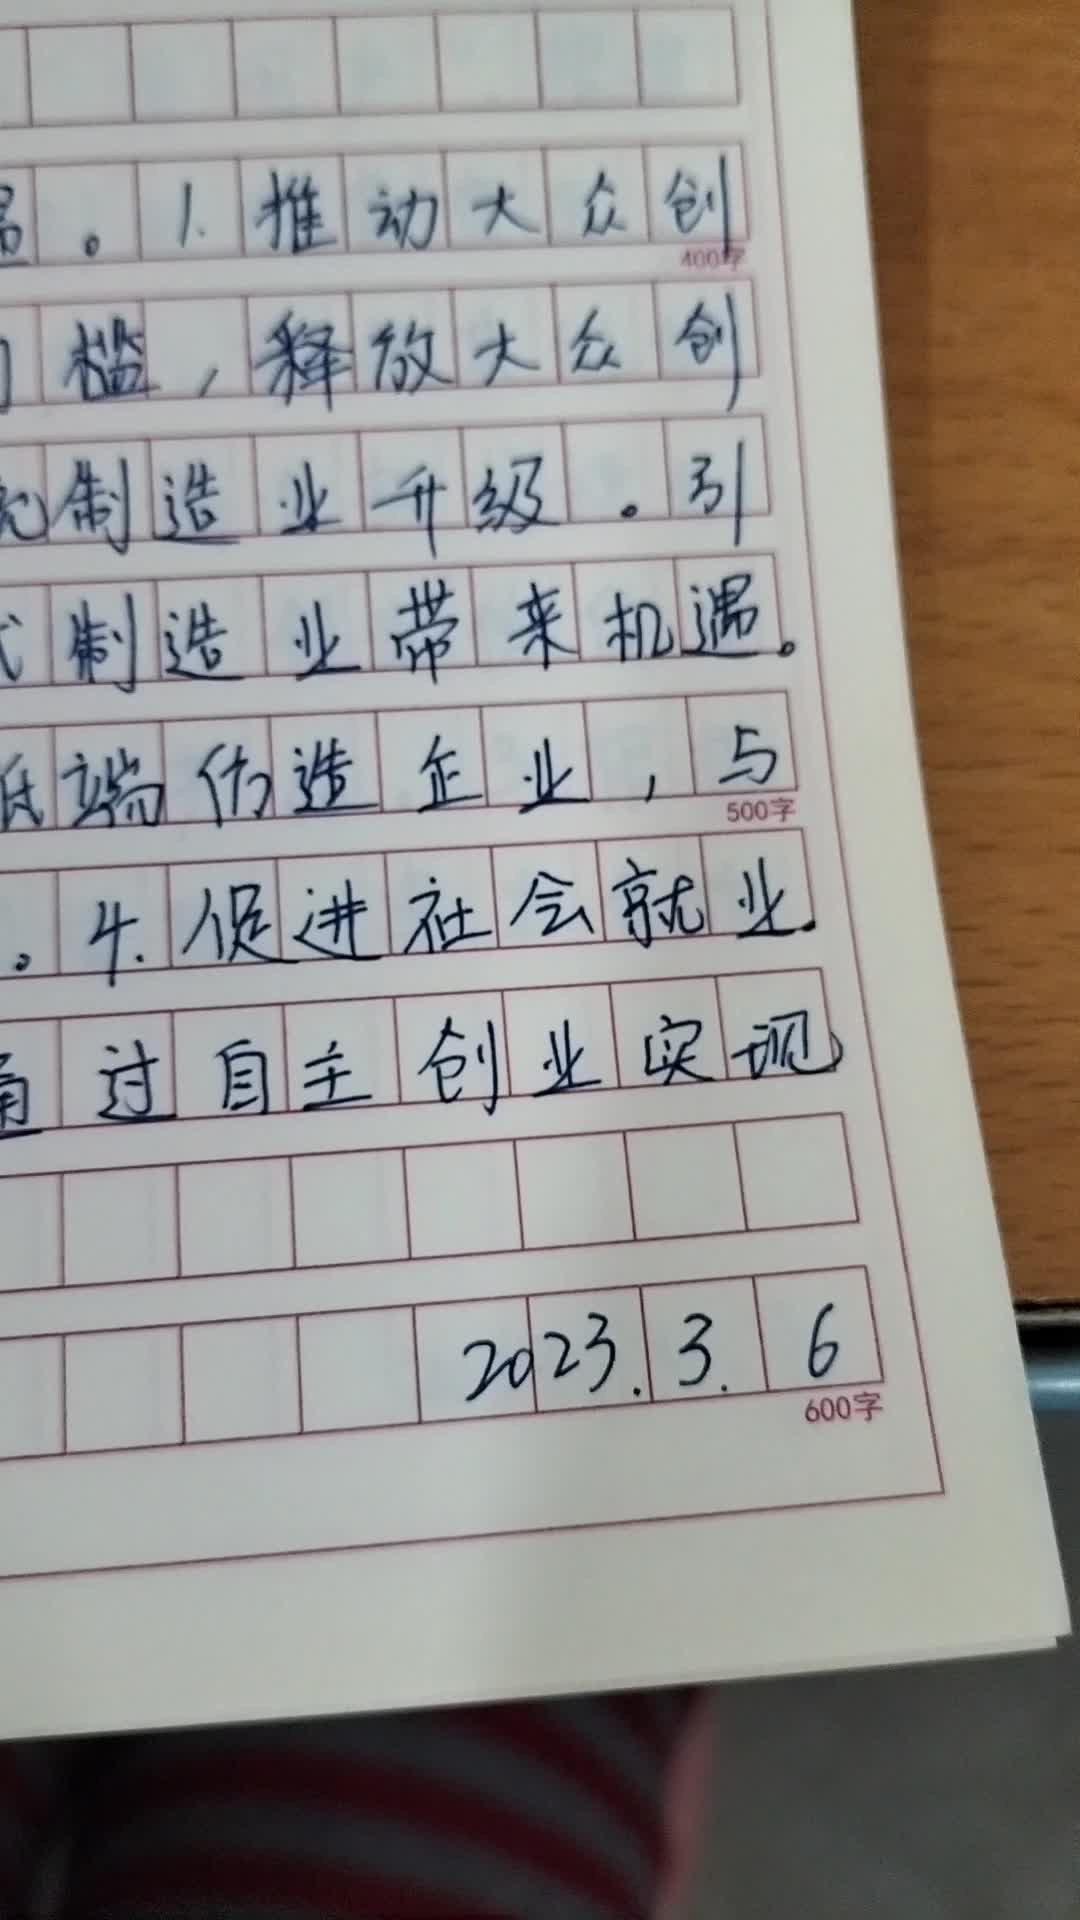 。1.推动大众创
400字
槛,释放大众创
制造业升级。引
制造业带来机遇。
低端仿造企业,与
500字
。4.促进社会就业.
通过自主创业实现
2023.3.6
600字